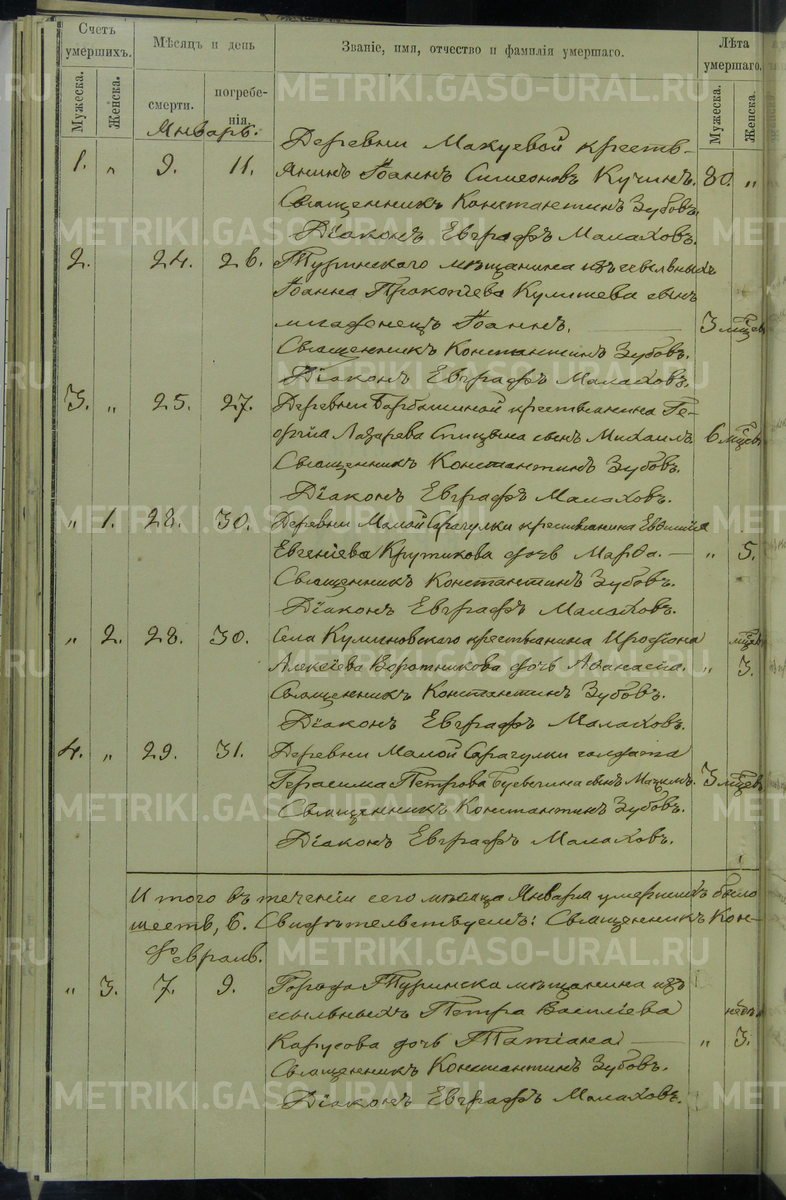 Счетъ умершихъ. Мѣсяцъ и день Званіе, имя, отчество и фамилія умершаго. Лѣта умершаго.
Мужеска. Женска. смерти. погребенія. Мужеска. Женска.
Январь.
Деревни Макуевой кресть-
1. „ 9. 11. янинъ Іоаннъ Симеоновъ Кучинъ. 80. „
Священникъ Константинъ Зубовъ.
Діаконъ Евграфъ Малаховъ.
2. 24. 26. Туринскаго мѣщанина изъ ссыльныхъ
Іоанна Прокопіева Кулишева сынъ
младенецъ Іоаннъ. 3 мѣцев
Священникъ Константинъ Зубовъ.
Діаконъ Евграфъ Малаховъ.
3. „ 25. 27. Деревни Барбашиной крестьянина Ге-
оргія Лазарева Спицына сынъ Михаилъ 6 мцев
Священникъ Константинъ Зубовъ.
Діаконъ Евграфъ Малаховъ.
„ 1. 28. 30. Деревни Малой Сарагулки крестьянина Евѳимія
Евгеніева Крутикова дочь Марѳа. — „ 5.
Священникъ Константинъ Зубовъ.
Діаконъ Евграфъ Малаховъ.
„ 2. 28. 30. Села Куминовскаго крестьянина Иродіона мцев
Алексіева Воротникова дочь Аѳанасія. „ 3.
Священникъ Константинъ Зубовъ.
Діаконъ Евграфъ Малаховъ.
4. „ 29. 31. Деревни Малой Сарагулки солдата
Герасима Петрова сынъ 3 мцев
Священникъ Константинъ Зубовъ.
Діаконъ Евграфъ Малаховъ.
Итого въ теченіи сего мѣсяца Января умершихъ было
шесть, 6. Свидѣтельствуемъ: Священникъ Кон-
Февраль.
„ 3. 7. 9. Города Туринска мѣщанина изъ
ссыльныхъ Петра Василіева нед.
Карусова дочь Татіана — „ 3.
Священникъ Константинъ Зубовъ.
Діаконъ Евграфъ Малаховъ.
METRIKI.GASO-URAL.RU